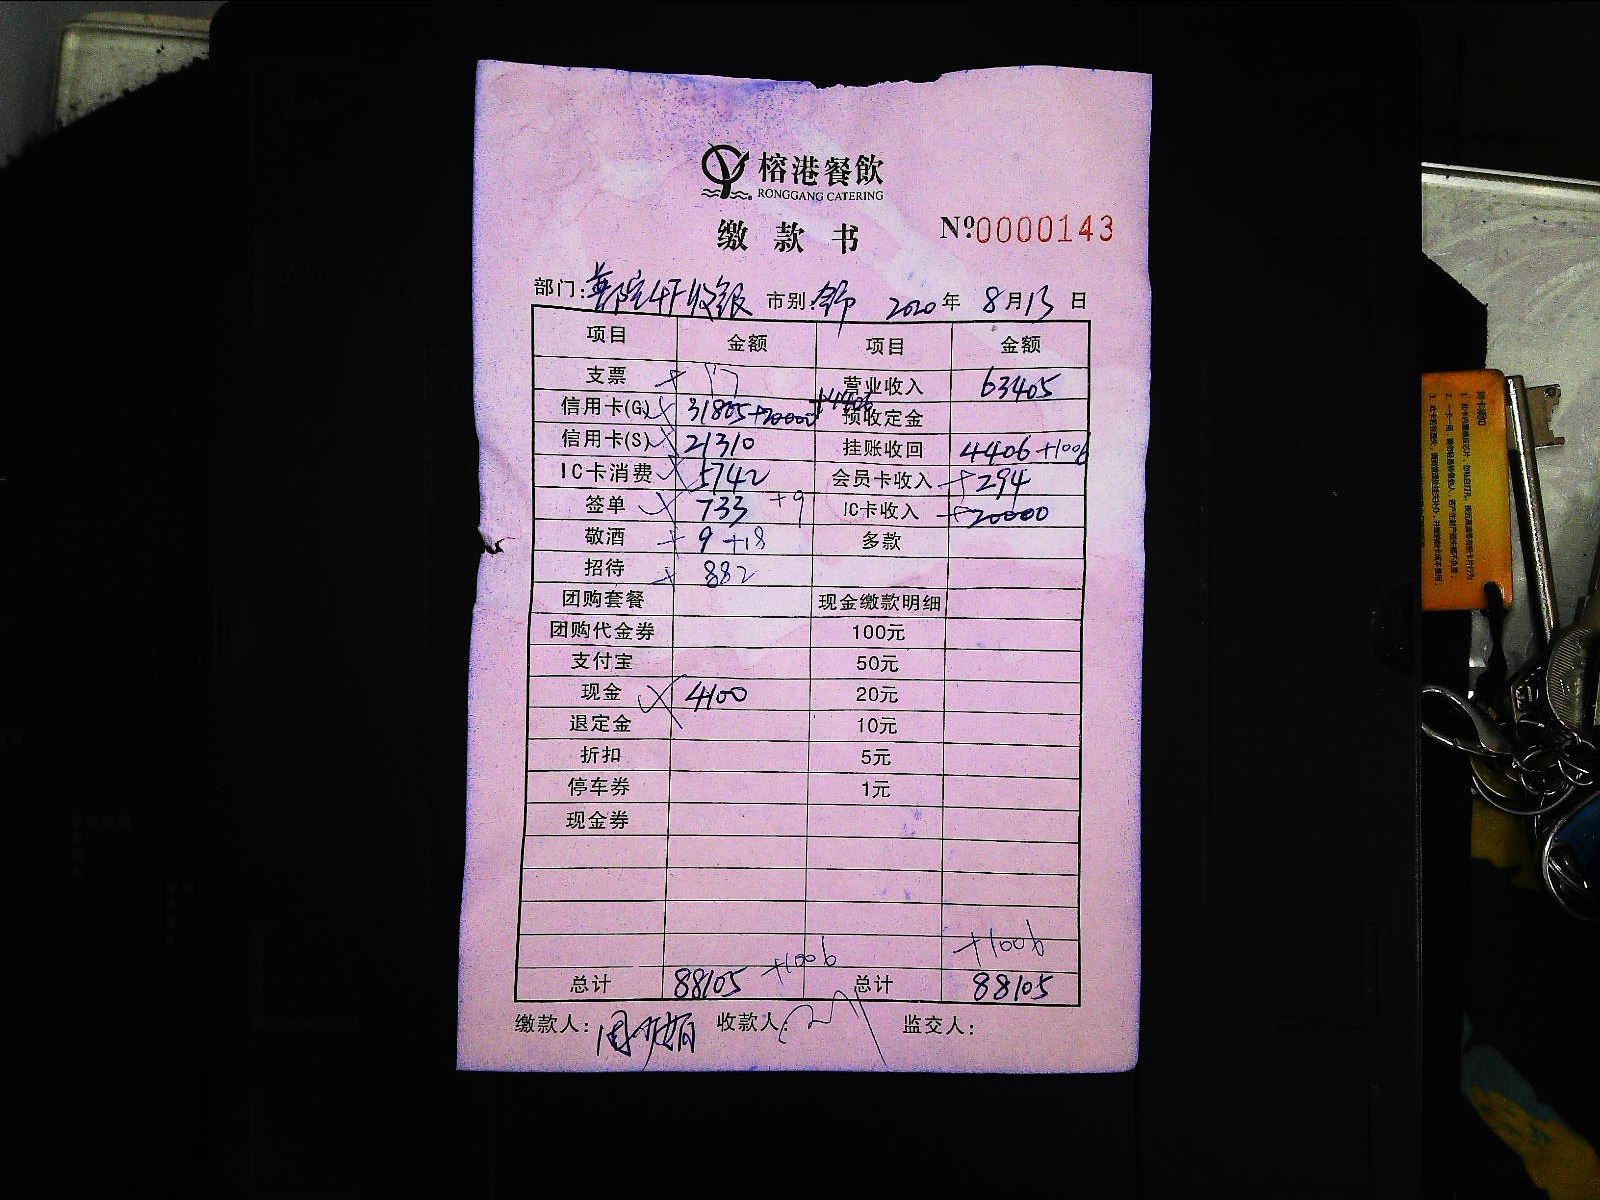 榕港餐飲
RONGGANG CATERING
缴款书
Nº:0000143
部门: 收银 市别: 2020年 8月13日
项目 金额 项目 金额
支票 + 17 营业收入 63405
信用卡(G) 31805+20000+4406 预收定金
信用卡(S) 21310 挂账收回 4406+1006
IC卡消费 5742 会员卡收入 +294
签单 733 +9 IC卡收入 +20000
敬酒 + 9 +18 多款
招待 + 882
团购套餐 现金缴款明细
团购代金券 100元
支付宝 50元
现金 4100 20元
退定金 10元
折扣 5元
停车券 1元
现金券
+1006
总计 88105 +1006 总计 88105
缴款人: 收款人: 监交人: